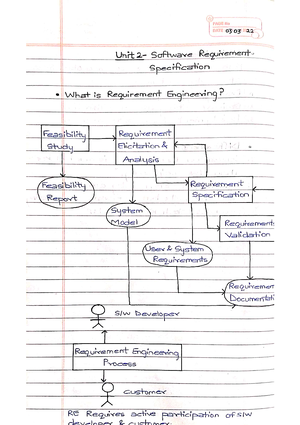 PAGE NO.
DATE 03.03.22
Unit 2- Software Requirement
Specification
• What is Requirement Engineering?
Feasibility
Study
Requirement
Elicitation &
Analysis
Feasibility
Report
Requirement
Specification
System
Model
Requirements
Validation
User & System
Requirements
Requirement
Documentati
S/W Developer
Requirement Engineering
Process
customer
RE Requires active participation of S/W
developer & customer.